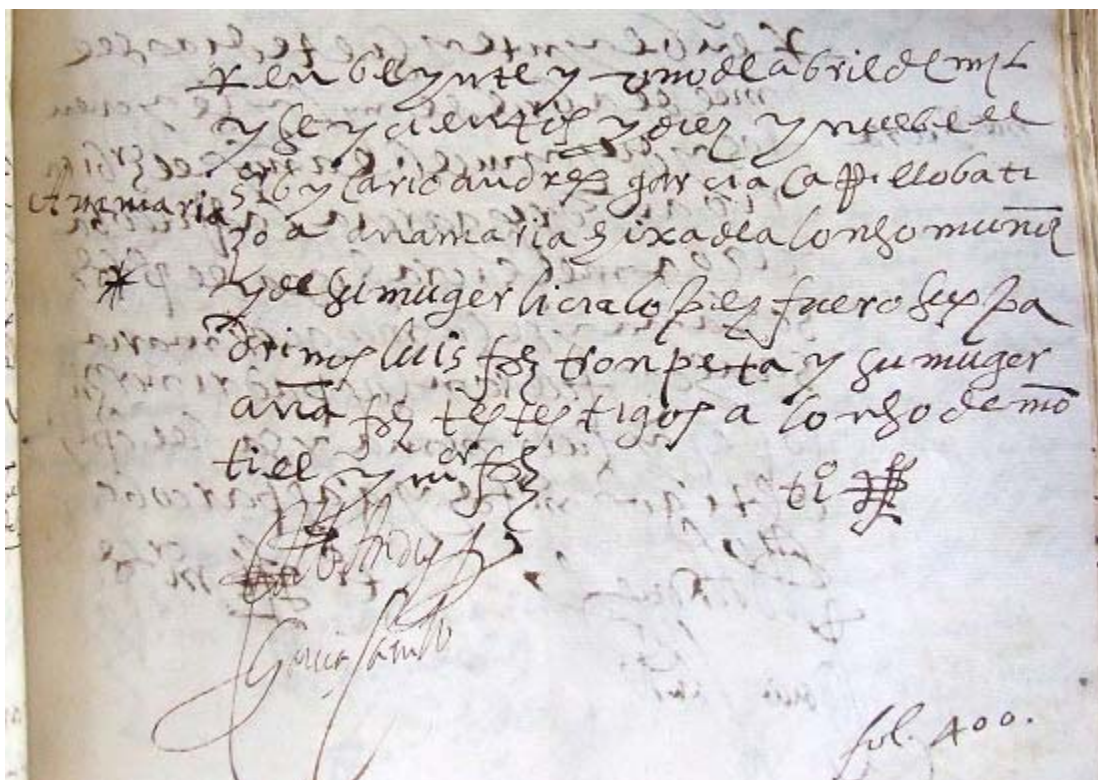 en beynte y uno de abril de mjl
y seyçientos y diez y nuebe el
sor bycario andres garcia capillo bati
Anamaria
zo a anamaria hixa de alonso muñoz
y de su muger lucia lopez fuero sus pa
drinos luis frs tronpeta y su muger
ana frs tes testigos alonso de mo
tiel y frs
to
Andres
Garcia Capillo
fol. 400.